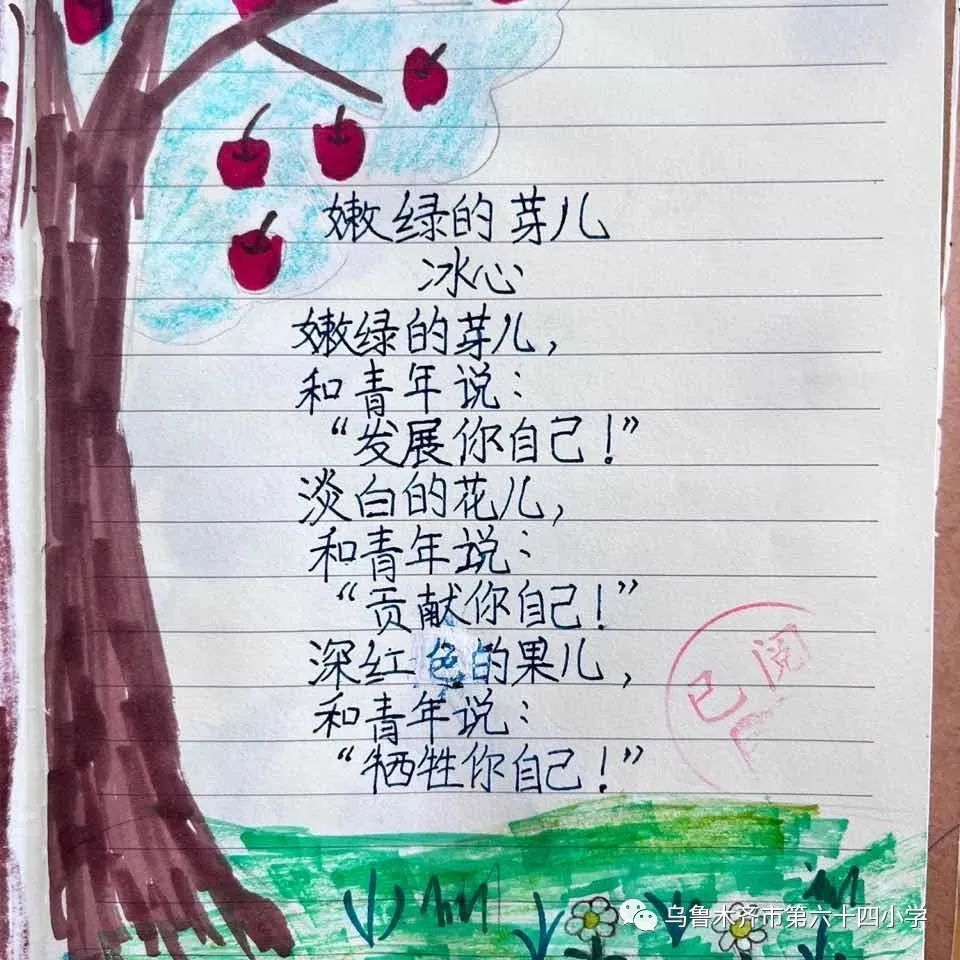 嫩绿的芽儿
冰心
嫩绿的芽儿，
和青年说：
“发展你自己！”
淡白的花儿，
和青年说：
“贡献你自己！”
深红色的果儿，
和青年说：
“牺牲你自己！”
已阅
乌鲁木齐市第六十四小学